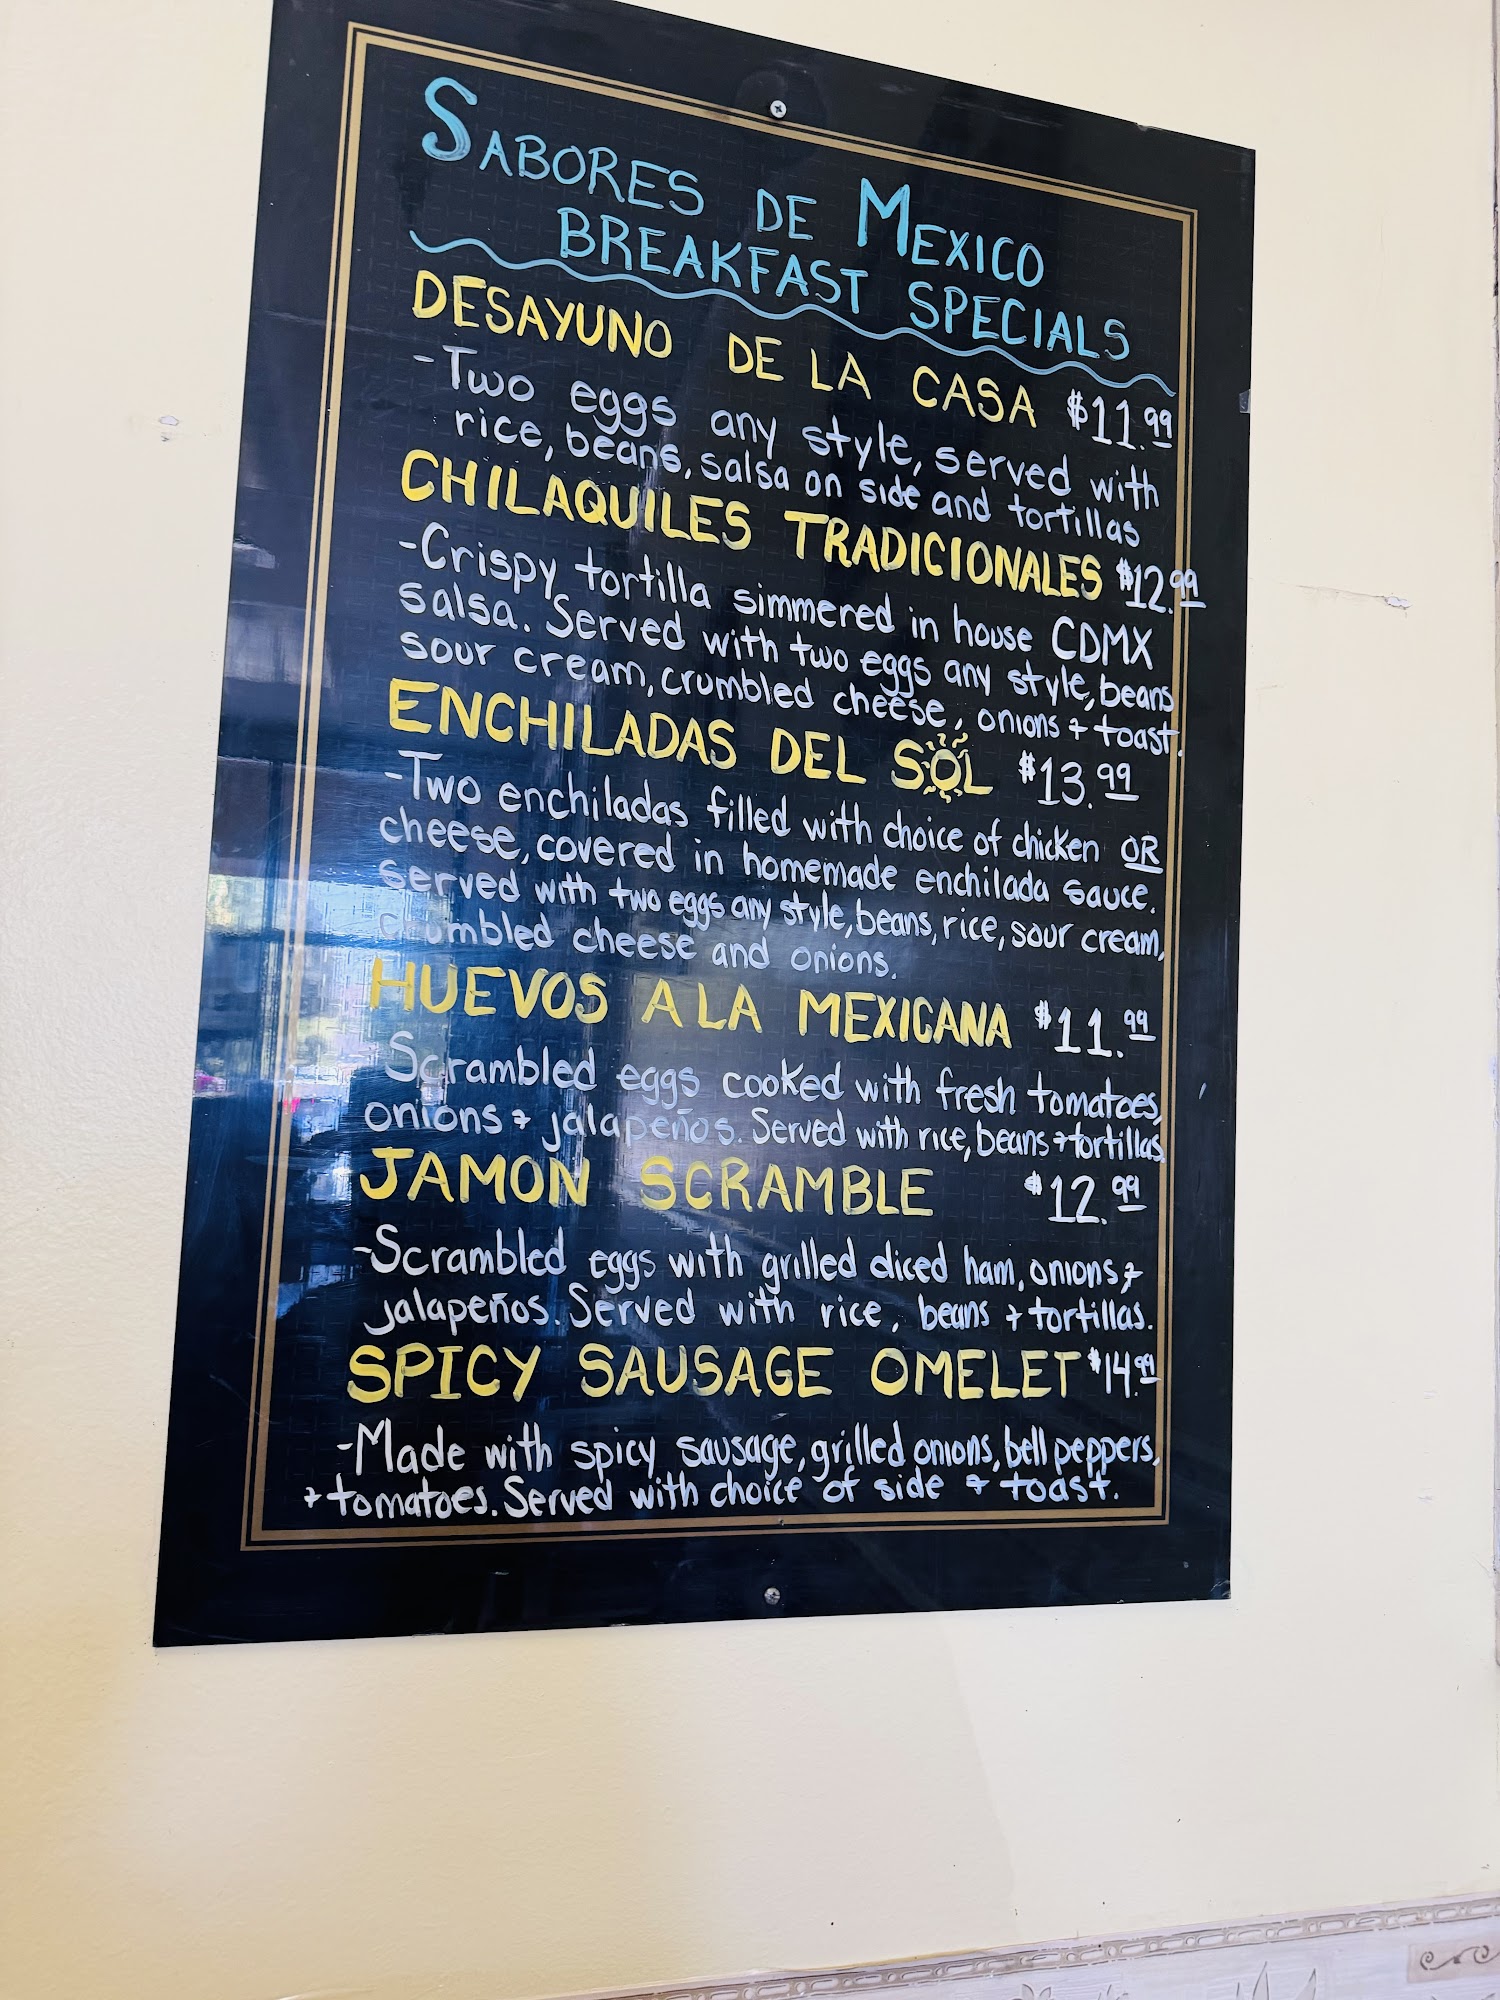 SABORES DE MEXICO
BREAKFAST SPECIALS
DESAYUNO DE LA CASA $11.99
-Two eggs any style, served with
rice, beans, salsa on side and tortillas
CHILAQUILES TRADICIONALES $12.99
-Crispy tortilla simmered in house CDMX
salsa. Served with two eggs any style, beans
sour cream, crumbled cheese, onions + toast.
ENCHILADAS DEL SOL $13.99
-Two enchiladas filled with choice of chicken OR
cheese, covered in homemade enchilada sauce.
served with two eggs any style, beans, rice, sour cream,
crumbled cheese and onions.
HUEVOS A LA MEXICANA $11.99
Scrambled eggs cooked with fresh tomatoes,
onions + jalapeños. Served with rice, beans + tortillas.
JAMON SCRAMBLE $12.99
-Scrambled eggs with grilled diced ham, onions +
jalapeños. Served with rice, beans + tortillas.
SPICY SAUSAGE OMELET $14.99
-Made with spicy sausage, grilled onions, bell peppers,
+ tomatoes. Served with choice of side + toast.